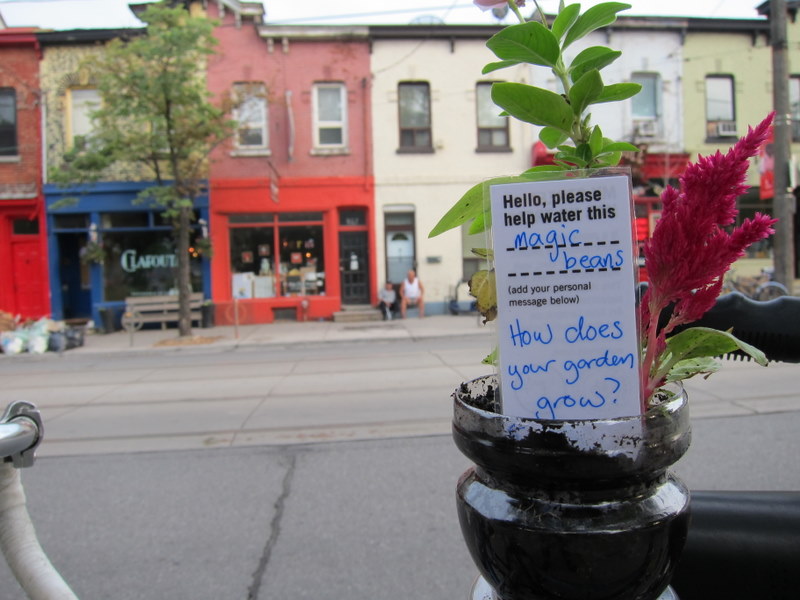 Hello, please
help water this
magic
beans
(add your personal
message below)
How does
your garden
grow?
CLAFOUTI